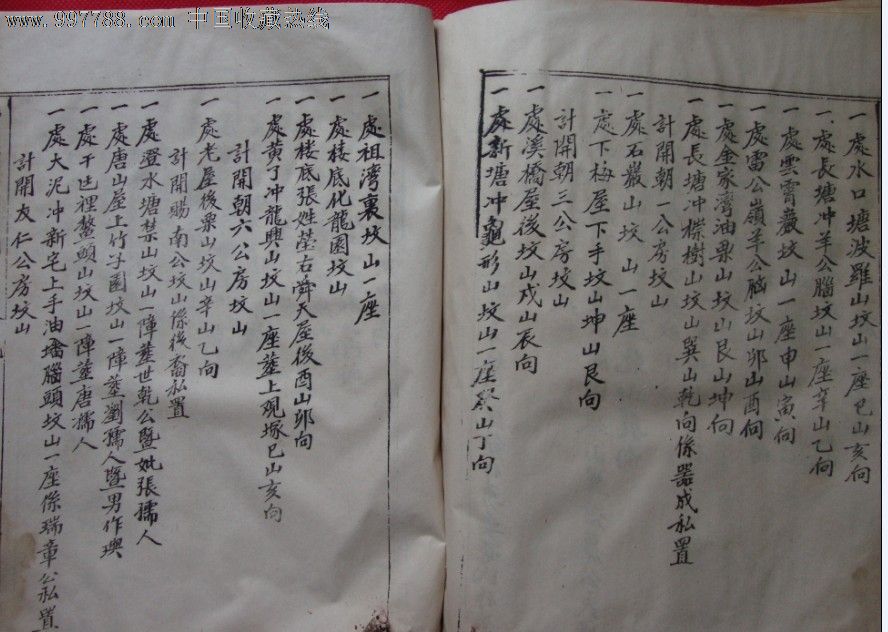 www.997788.com 中国收藏热线
一處水口塘波羅山坟山一座巳山亥向
一處長塘冲羊公腦坟山一座辛山乙向
一處雲霄巖坟山一座申山寅向
一處雷公嶺羊公腦坟山卯山酉向
一處金家湾油栗山坟山艮山坤向
一處長塘冲樑樹山坟山巽山乾向係器成私置
計開朝一公房坟山
一處石巖山坟山一座
一處下梅屋下手坟山坤山艮向
計開朝三公房坟山
一處溪橋屋後坟山戍山辰向
一處新塘冲龜形山坟山一座癸山丁向
一處祖湾裏坟山一座
一處楼底化龍園坟山
一處楼底張姓瑩右舜天屋後酉山卯向
一處黄丁冲龍興山坟山一座塟上观塚巳山亥向
計開朝六公房坟山
一處老屋後栗山坟山辛山乙向
計開賜南公坟山係後裔私置
一處澄水塘禁山坟山一陣塟世乾公暨妣張孺人
一處唐山屋上竹子園坟山一陣塟劉孺人暨男作璵
一處干岜裡鰲頭山坟山一陣塟唐孺人
一處大泥冲新宅上手油墦腦頭坟山一座係瑞章公私置
計開友仁公房坟山